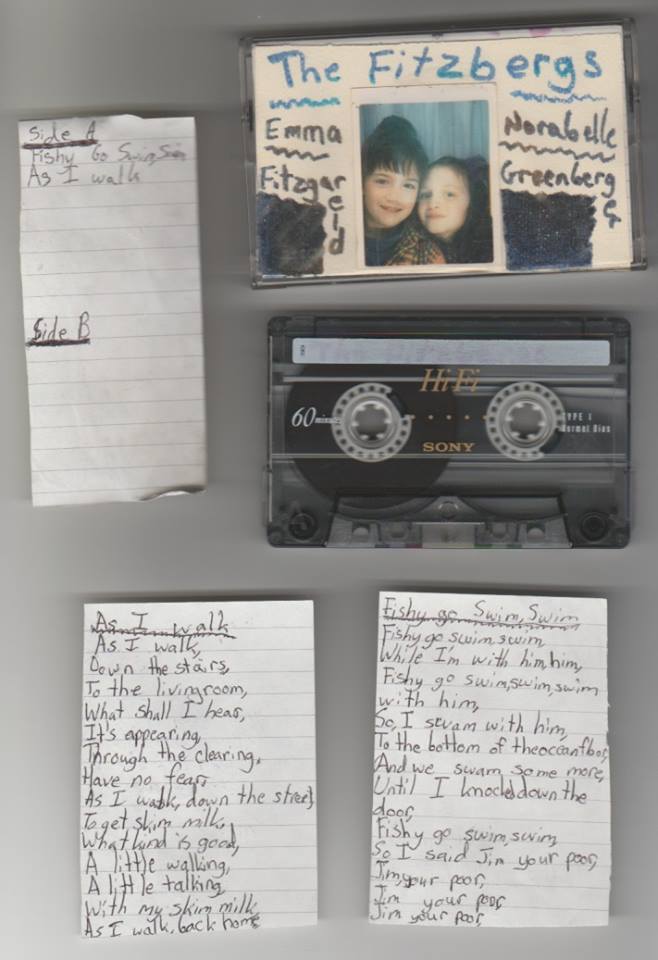 The Fitzbergs
Emma
Fitzgareld
Norabelle
Greenberge
&
Side A
Fishy Go Swim Swim
As I walk
Side B
HiFi
60 minutes
TYPE I
Normal Bias
SONY
As I walk
As I walk,
Down the stairs,
To the livingroom,
What shall I hear,
It's appearing,
Through the clearing,
Have no fear,
As I walk, down the street,
To get skim milk,
What kind is good,
A little walking,
A little talking,
With my skim milk
As I walk, back home
Fishy go Swim, Swim
Fishy go swim, swim,
While I'm with him, him,
Fishy go swim, swim, swim
with him,
So, I swam with him,
To the bottom of the ocean floor,
And we swam some more,
Until I knocked down the
door,
Fishy go swim, swim,
So I said Jim your poor,
Jim, your poor,
Jim your poor,
Jim your poor,